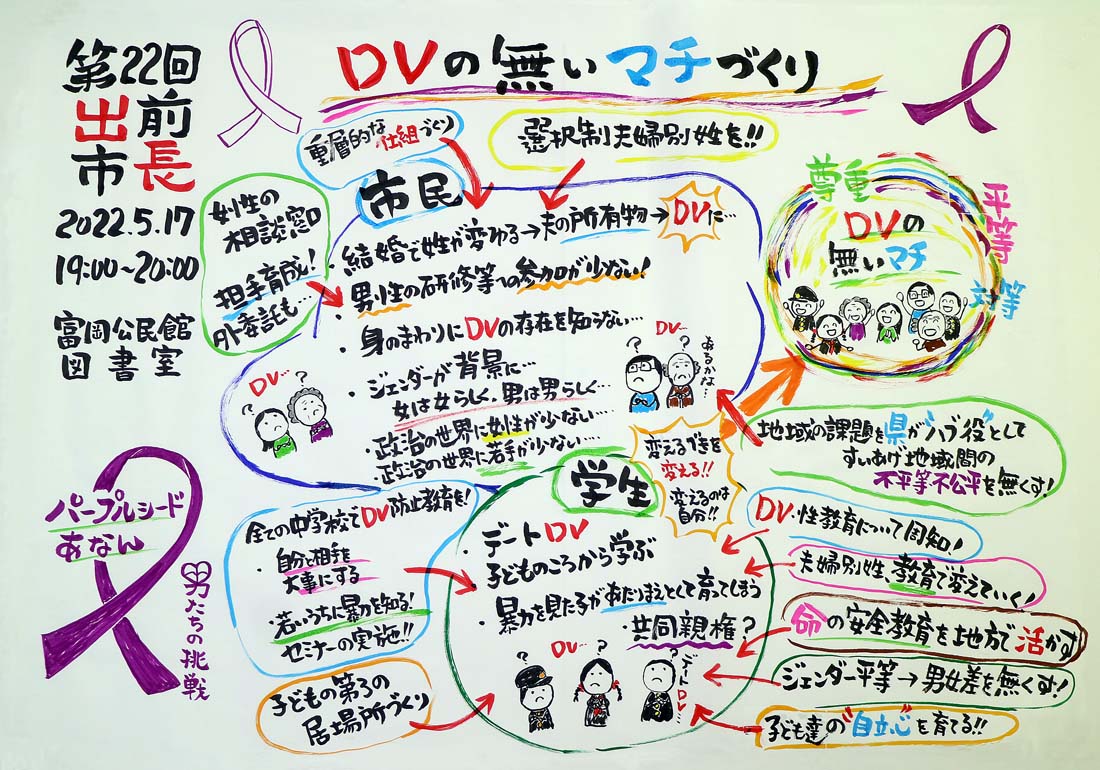 第22回
出前
市長
2022.5.17
19:00~20:00
富岡公民館
図書室
DVの無いマチづくり
重層的な仕組づくり
選択制夫婦別姓を!!
女性の
相談窓口
担手育成!
外委託も…
市民
・結婚で姓が変わる→夫の所有物→DVに…
・男性の研修等への参加が少ない!
・身のまわりにDVの存在を知らない…
・ジェンダーが背景に…
女は女らしく、男は男らしく…
・政治の世界に女性が少ない…
・政治の世界に若手が少ない…
DV…
?
?
DV…
?
?
あるかな…
尊重
平等
対等
DVの
無いマチ
変えるべきを
変える!!
変えるのは
自分!!
地域の課題を県が"ハブ役"として
すいあげ地域間の
不平等不公平を無くす!
パープルシード
あなん
男たちの挑戦
全ての中学校でDV防止教育を!
・自分と相手を
大事にする
・若いうちに暴力を知る!
セミナーの実施!!
子どもの第3の
居場所づくり
学生
・デートDV
子どものころから学ぶ
・暴力を見た子があたりまえとして育ってしまう
・共同親権?
DV…
?
?
?
デートDV…
DV・性教育について周知!
夫婦別姓、教育で変えていく!
命の安全教育を地方で活かす
ジェンダー平等→男女差を無くす!
子ども達の"自立心"を育てる!!